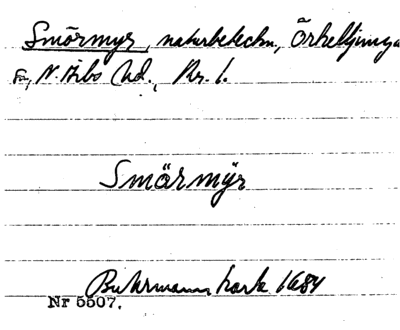 Smörmyr, naturbeteckn., Örkelljunga
sn, N. Åsbo hd., Kr. l.
Smörmÿr
Buhrmanns karta 1684
Nr 5507.